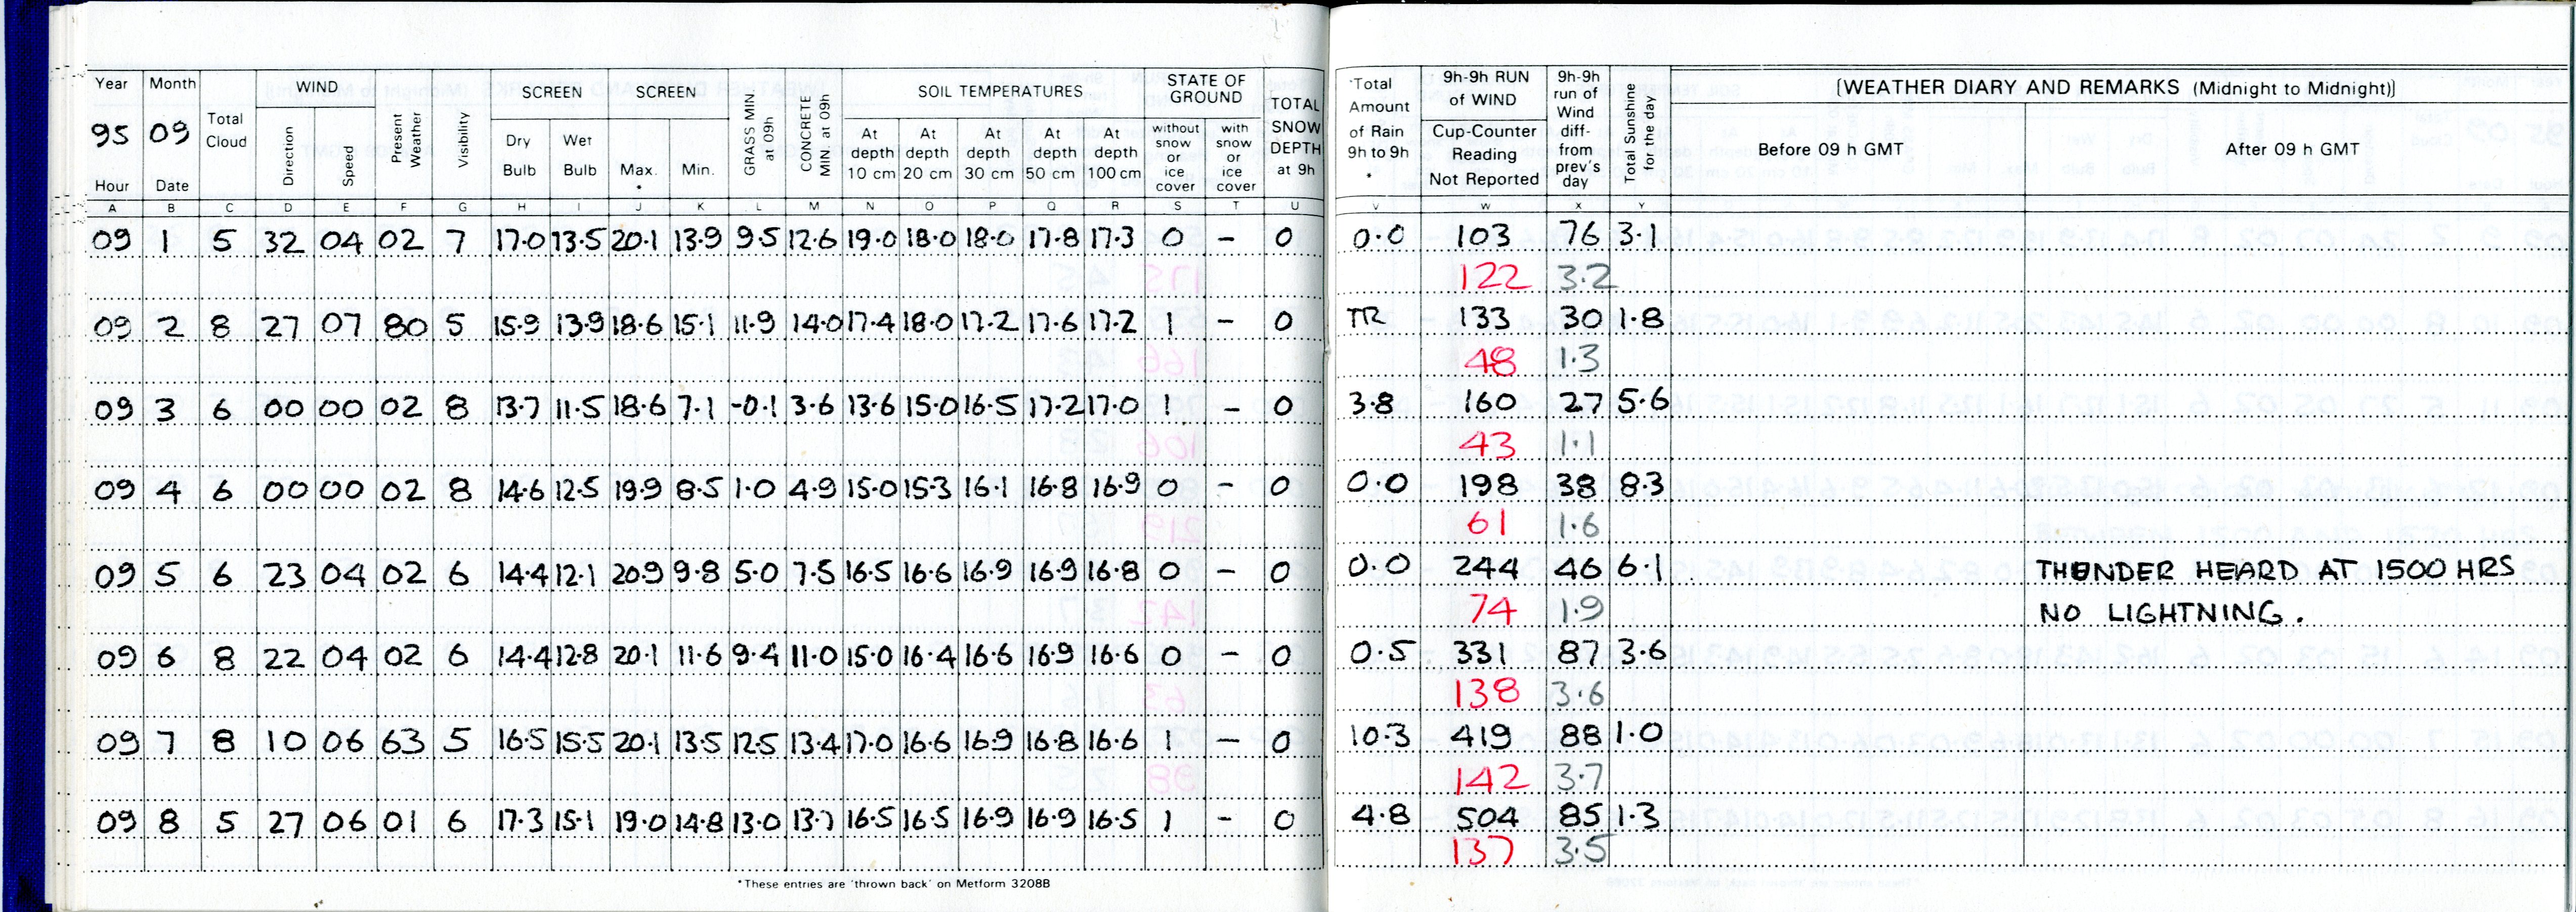 Year Month WIND SCREEN SCREEN SOIL TEMPERATURES STATE OF GROUND
95 09 Total Cloud Direction Speed Present Weather Visibility Dry Bulb Wet Bulb Max. * Min. GRASS MIN at 09h CONCRETE MIN at 09h At depth 10 cm At depth 20 cm At depth 30 cm At depth 50 cm At depth 100 cm without snow or ice cover with snow or ice cover TOTAL SNOW DEPTH at 9h
Hour Date
A B C D E F G H I J K L M N O P Q R S T U
09 1 5 32 04 02 7 17.0 13.5 20.1 13.9 9.5 12.6 19.0 18.0 18.0 17.8 17.3 0 – 0
09 2 8 27 07 80 5 15.9 13.9 18.6 15.1 11.9 14.0 17.4 18.0 17.2 17.6 17.2 1 – 0
09 3 6 00 00 02 8 13.7 11.5 18.6 7.1 -0.1 3.6 13.6 15.0 16.5 17.2 17.0 1 – 0
09 4 6 00 00 02 8 14.6 12.5 19.9 8.5 1.0 4.9 15.0 15.3 16.1 16.8 16.9 0 – 0
09 5 6 23 04 02 6 14.4 12.1 20.9 9.8 5.0 7.5 16.5 16.6 16.9 16.9 16.8 0 – 0
09 6 8 22 04 02 6 14.4 12.8 20.1 11.6 9.4 11.0 15.0 16.4 16.6 16.9 16.6 0 – 0
09 7 8 10 06 63 5 16.5 15.5 20.1 13.5 12.5 13.4 17.0 16.6 16.9 16.8 16.6 1 – 0
09 8 5 27 06 01 6 17.3 15.1 19.0 14.8 13.0 13.7 16.5 16.5 16.9 16.9 16.5 1 – 0
*These entries are 'thrown back' on Metform 3208B
Total Amount of Rain 9h to 9h * 9h-9h RUN of WIND Cup-Counter Reading Not Reported 9h-9h run of Wind diff- from prev's day Total Sunshine for the day [WEATHER DIARY AND REMARKS (Midnight to Midnight)]
Before 09 h GMT After 09 h GMT
V W X Y
0.0 103 76 3.1
122 3.2
TR 133 30 1.8
48 1.3
3.8 160 27 5.6
43 1.1
0.0 198 38 8.3
61 1.6
0.0 244 46 6.1 THUNDER HEARD AT 1500 HRS
74 1.9 NO LIGHTNING.
0.5 331 87 3.6
138 3.6
10.3 419 88 1.0
142 3.7
4.8 504 85 1.3
137 3.5